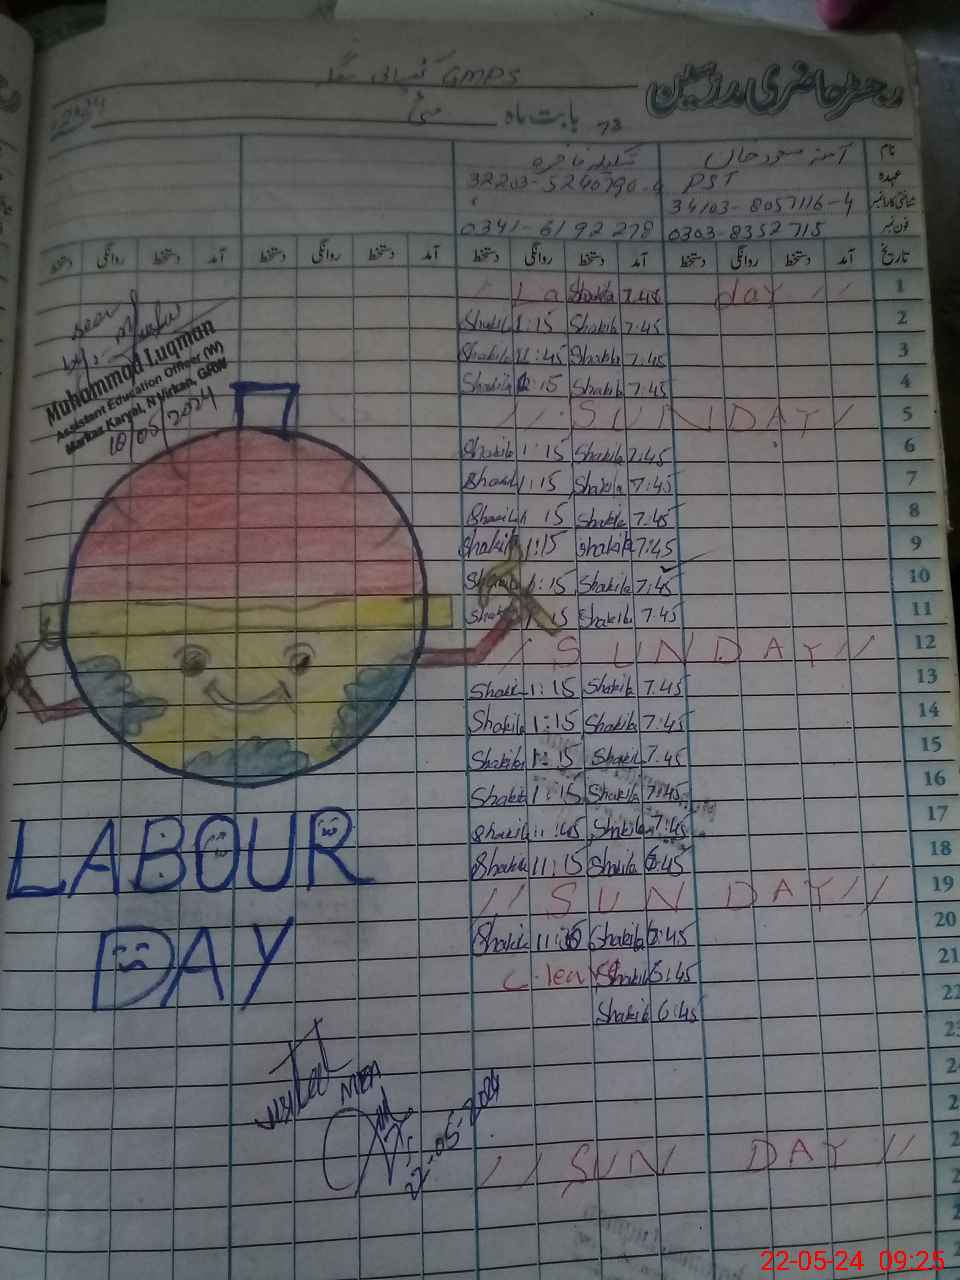 GMPS
رجسٹر حاضری مدرسین
بابت ماہ مئی
نام
عہدہ PST
32203-5240790-
شناختی کارڈ نمبر 34103-8057116-4
فون نمبر 0303-8352715 0341-6192278
تاریخ آمد دستخط روانگی دستخط آمد دستخط روانگی دستخط آمد دستخط روانگی دستخط آمد دستخط روانگی دستخط
La Shakila 7.45 day 1
Shakil 1:15 Shakila 7.45 2
Shakila 11:45 Shakila 7.45 3
Shakila :15 Shakila 7.45 4
// SUNDAY // 5
Shakila 1:15 Shakila 7:45 6
Shakil 1:15 Shakila 7:45 7
15 Shakila 7:45 8
Shakil 1:15 Shakila 7:45 9
1:15 Shakila 7:45 10
15 Shakila 7.45 11
// SUNDAY // 12
Shakil 1:15 Shakila 7.45 13
Shakila 1:15 Shakila 7.45 14
Shakila 1:15 Shakil 7.45 15
Shakila 1:15 Shakila 7.45 16
Shakila 11:45 Shakila 7.45 17
Shakila 11:15 Shakila 6.45 18
// SUN DAY // 19
Shakila 11:30 Shakila 6:45 20
C.leave Shakil 6:45 21
Shakila 6:45 22
23
// SUN DAY //
seen
Muhammad Luqman
Assistant Education Officer (M)
Markaz Karyal, N.Virkan, GRW
18/05/2024
LABOUR
DAY
Visited
MEA
22-05-2024
22-05-24 09:25